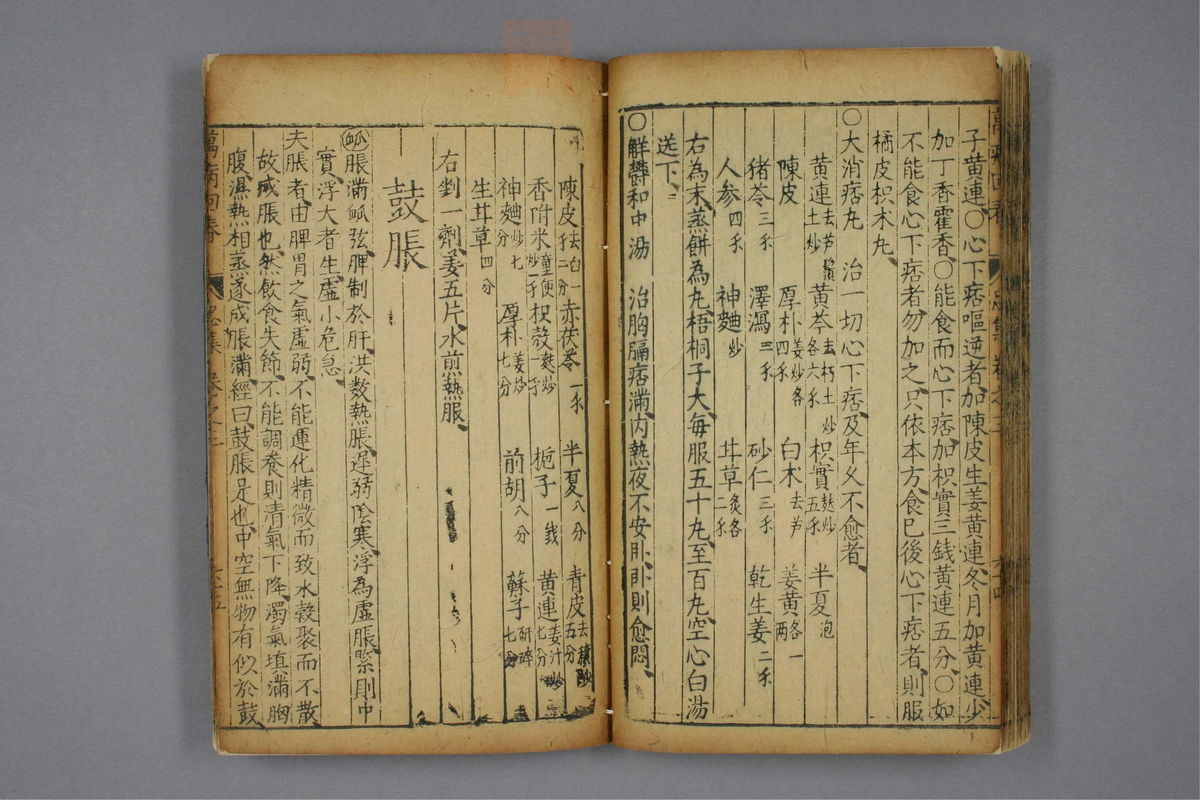 子黄連○心下痞嘔逆者加陳皮生姜黄連冬月加黄連少
加丁香藿香○能食而心下痞加枳實三錢黄連五分○如
不能食心下痞者勿加之只依本方食已後心下痞者則服
橘皮枳朮丸
○大消痞丸 治一切心下痞及年久不愈者
黄連去芦鬚土炒 黄芩去朽土炒各六禾 枳實麸炒五禾 半夏泡
陳皮 厚朴姜炒各四禾 白朮去芦 姜黄各一两
猪苓三禾 澤瀉三禾 砂仁三禾 乾生姜二禾
人参四禾 神麯炒 甘草炙各二禾
右為末蒸餅為丸梧桐子大毎服五十丸至百丸空心白湯
送下
○觧欝和中湯 治胸膈痞滿内熱夜不安卧卧則愈悶
陳皮去白一禾二分 赤茯苓一禾 半夏八分 青皮去穰五分
香附米童便炒一禾 枳殻麸炒一禾 梔子一錢 黄連姜汁炒七分
神麯炒七分 厚朴姜炒七分 前胡八分 蘇子研碎七分
生甘草四分
右剉一劑姜五片水煎熱服
鼓脹
脈脹滿脈弦脾制於肝洪数熱脹遲弱陰寒浮為虚脹緊則中
實浮大者生虚小危急
夫脹者由脾胃之氣虚弱不能運化精微而致水穀聚而不散
故成脹也然飲食失節不能調養則清氣下降濁氣填滿胸
腹濕熱相蒸遂成脹滿經曰鼓脹是也中空無物有似於鼓
萬病回春